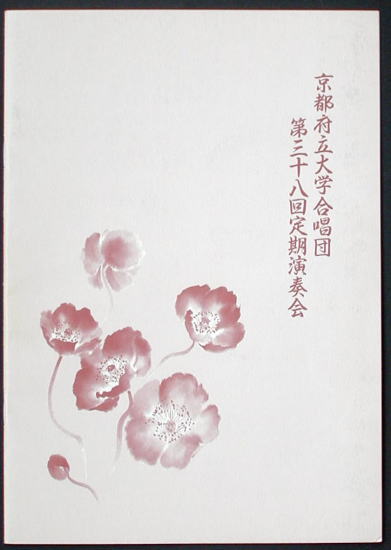 京都府立大学合唱団
第三十八回定期演奏会